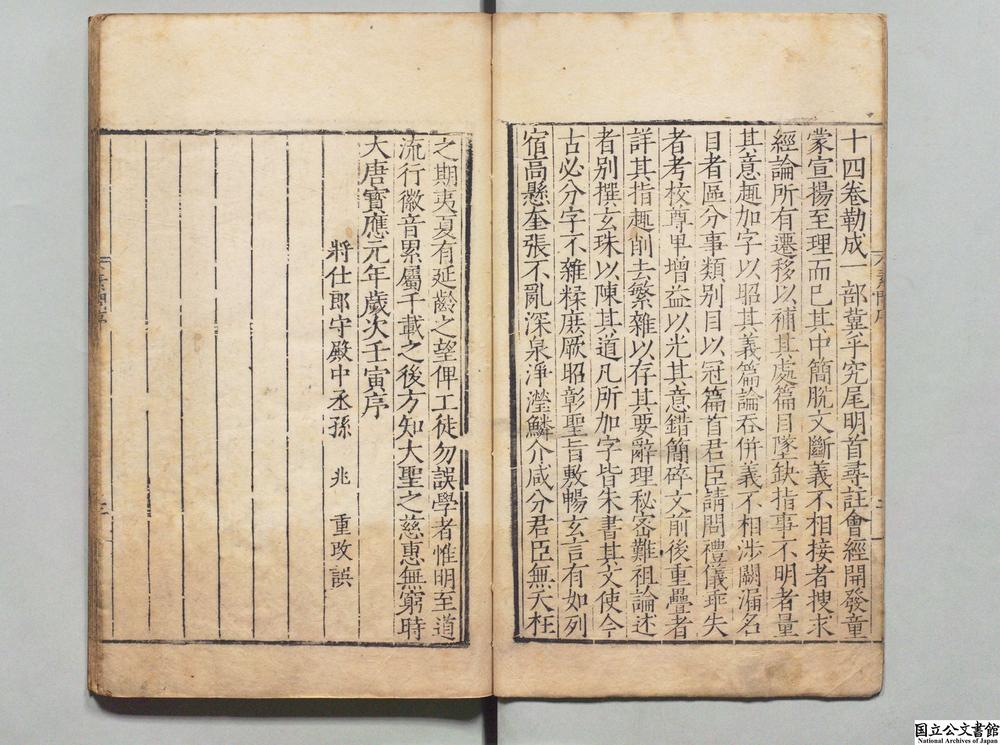 十四卷勒成一部冀乎究尾明首尋註會經開發童
蒙宣揚至理而已其中簡脫文斷義不相接者搜求
經論所有遷移以補其處篇目墜缺指事不明者量
其意趣加字以昭其義篇論吞併義不相涉闕漏名
目者區分事類別目以冠篇首君臣請問禮儀乖失
者考校尊卑增益以光其意錯簡碎文前後重疊者
詳其指趣削去繁雜以存其要辭理秘密難粗論述
者別撰玄珠以陳其道凡所加字皆朱書其文使今
古必分字不雜糅庶厥昭彰聖旨敷暢玄言有如列
宿高懸奎張不亂深泉淨瀅鱗介咸分君臣無夭枉
之期夷夏有延齡之望俾工徒勿誤學者惟明至道
流行徽音累屬千載之後方知大聖之慈惠無窮時
大唐寶應元年歲次壬寅序
將仕郎守殿中丞孫　兆　重改誤
国立公文書館
National Archives of Japan